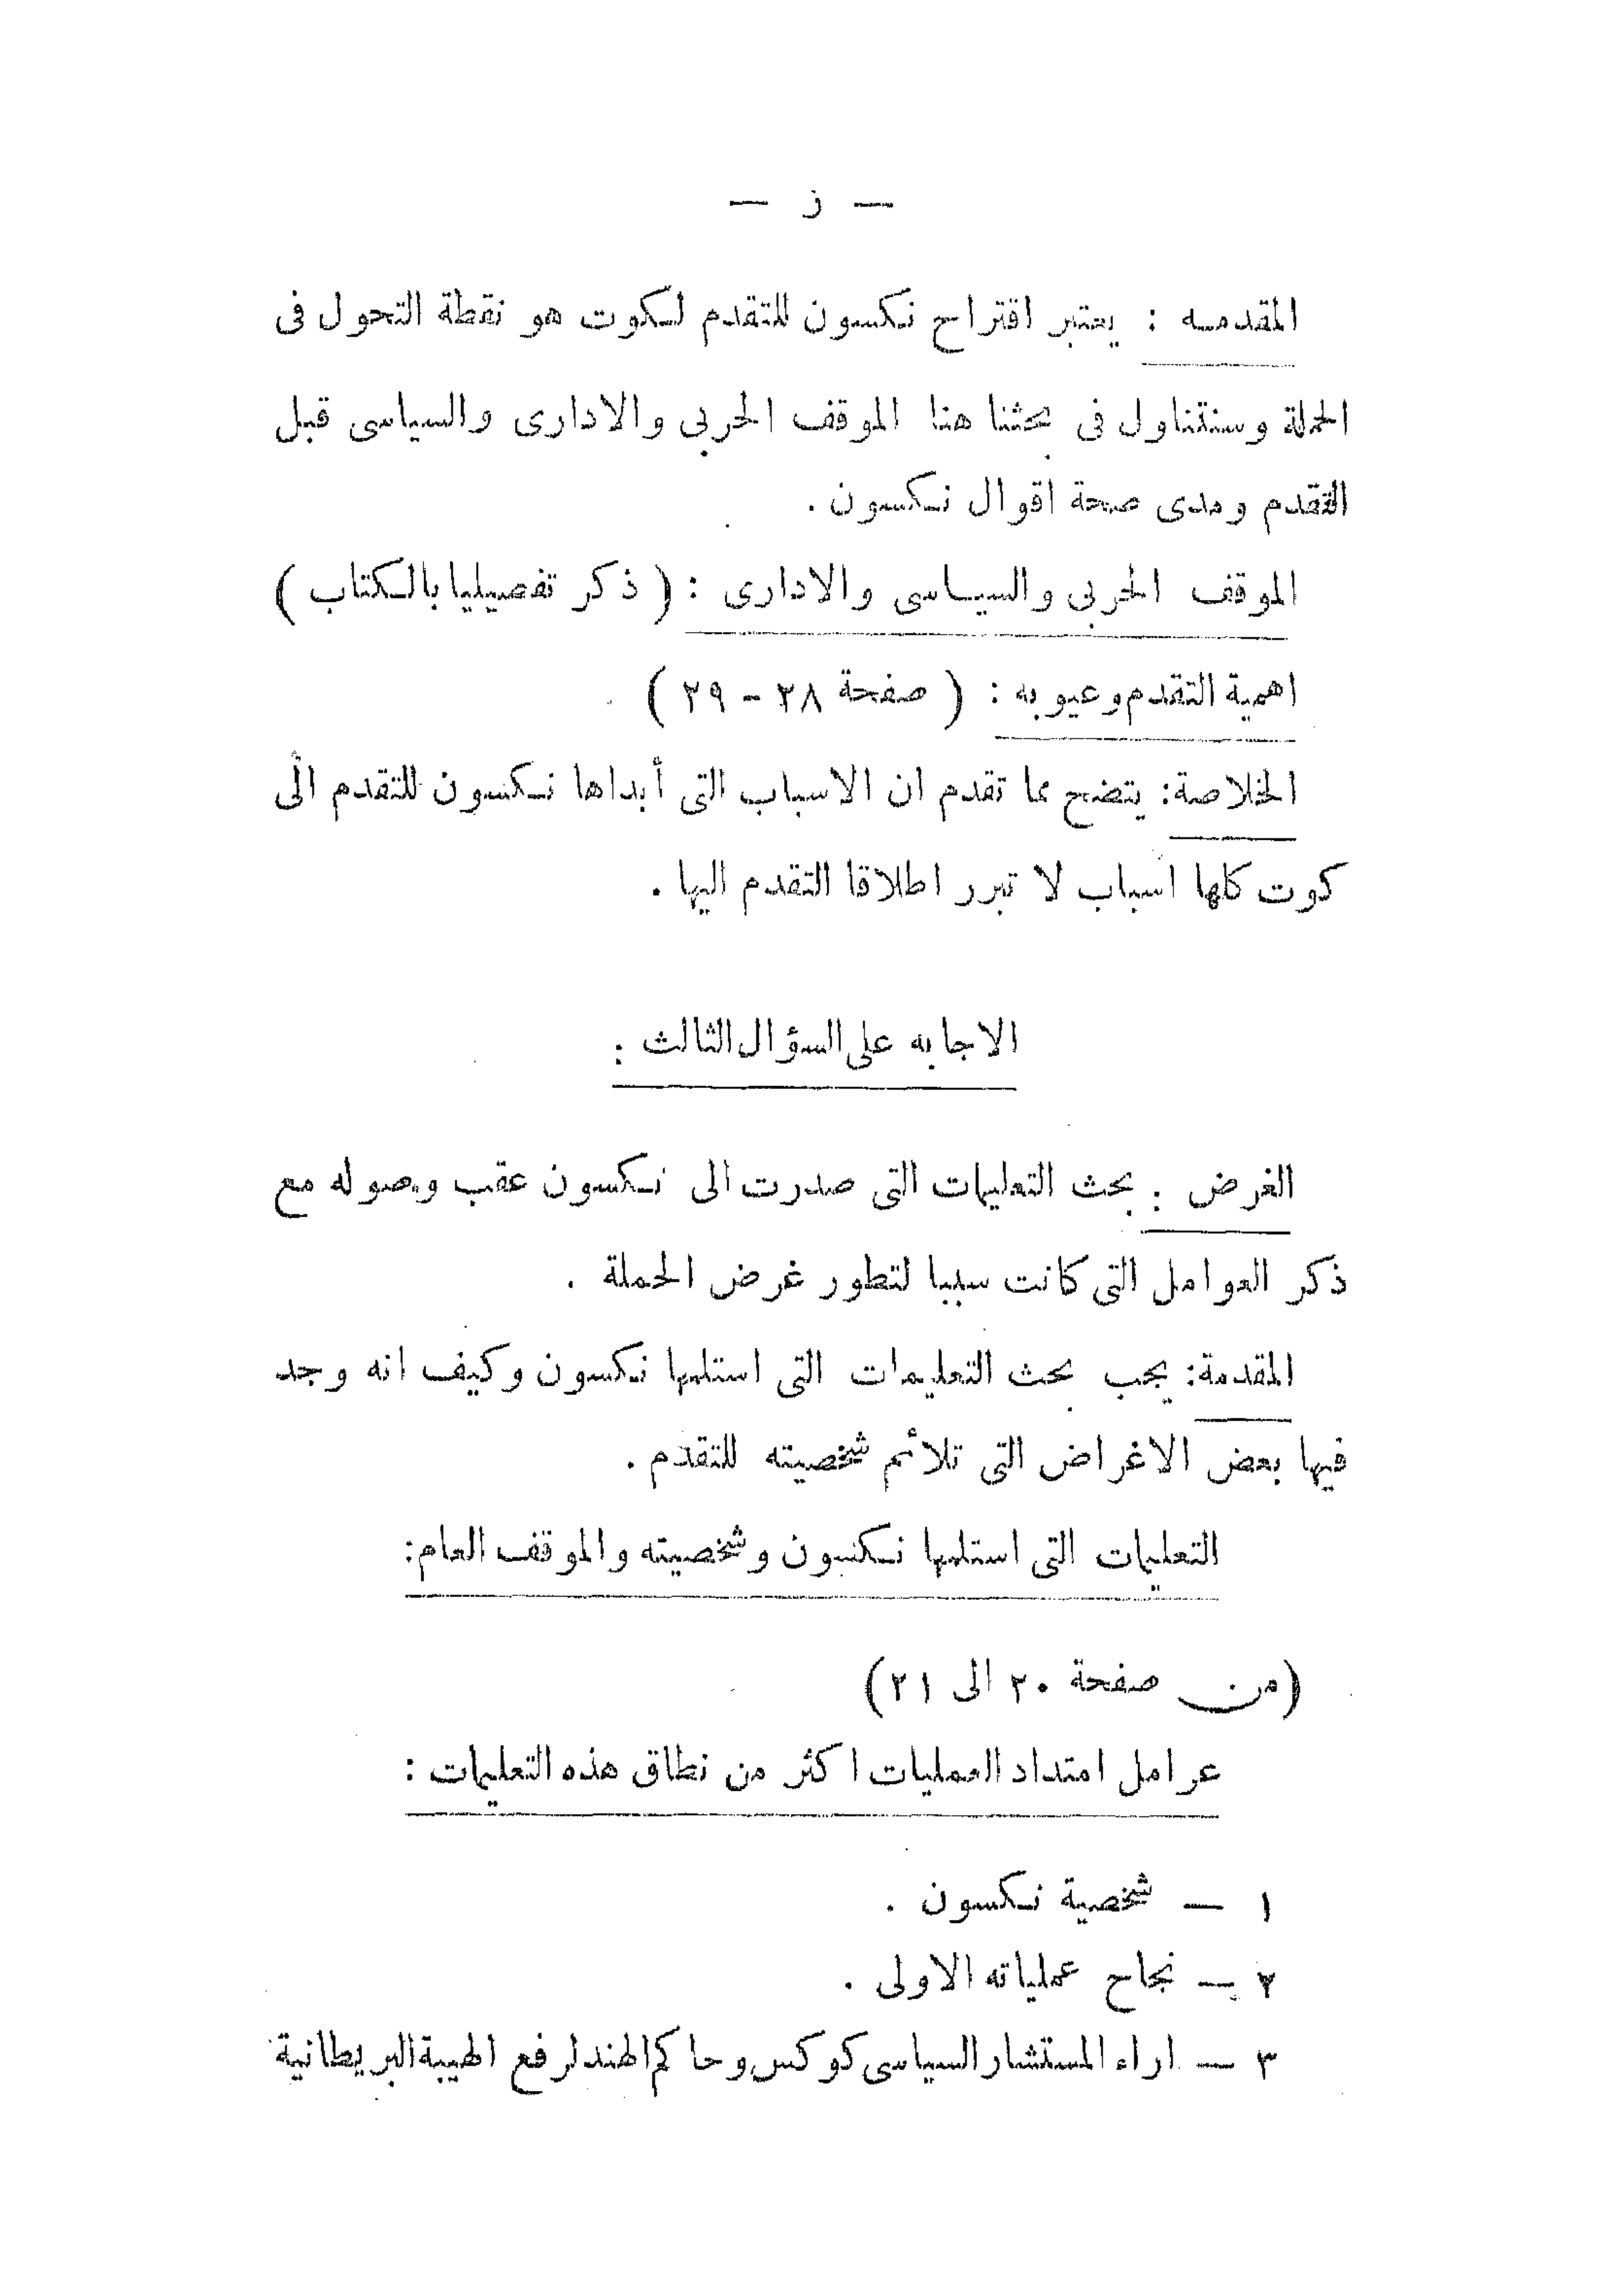 — ز —
المقدمه : يعتبر اقتراح نكسون للتقدم لكوت هو نقطة التحول فى
الحملة وسنتناول فى بحثنا هنا الموقف الحربى والادارى والسياسى قبل
التقدم ومدى صحة اقوال نكسون .
الموقف الحربى والسياسى والادارى : ( ذكر تفصيليا بالكتاب )
اهمية التقدم وعيوبه : ( صفحة ٢٨ - ٢٩ )
الخلاصة : يتضح مما تقدم ان الاسباب التى أبداها نكسون للتقدم الى
كوت كلها اسباب لا تبرر اطلاقا التقدم اليها .
الاجابه على السؤال الثالث :
الغرض : بحث التعليمات التى صدرت الى نكسون عقب وصوله مع
ذكر العوامل التى كانت سببا لتطور غرض الحملة .
المقدمة : يجب بحث التعليمات التى استلمها نكسون وكيف انه وجد
فيها بعض الاغراض التى تلائم شخصيته للتقدم .
التعليمات التى استلمها نكسون وشخصيته والموقف العام :
(من صفحة ٢٠ الى ٢١)
عوامل امتداد العمليات اكثر من نطاق هذه التعليمات :
١ — شخصية نكسون .
٢ — نجاح عملياته الاولى .
٣ — اراء المستشار السياسى كوكس وحاكم الهند لرفع الهيبة البريطانية